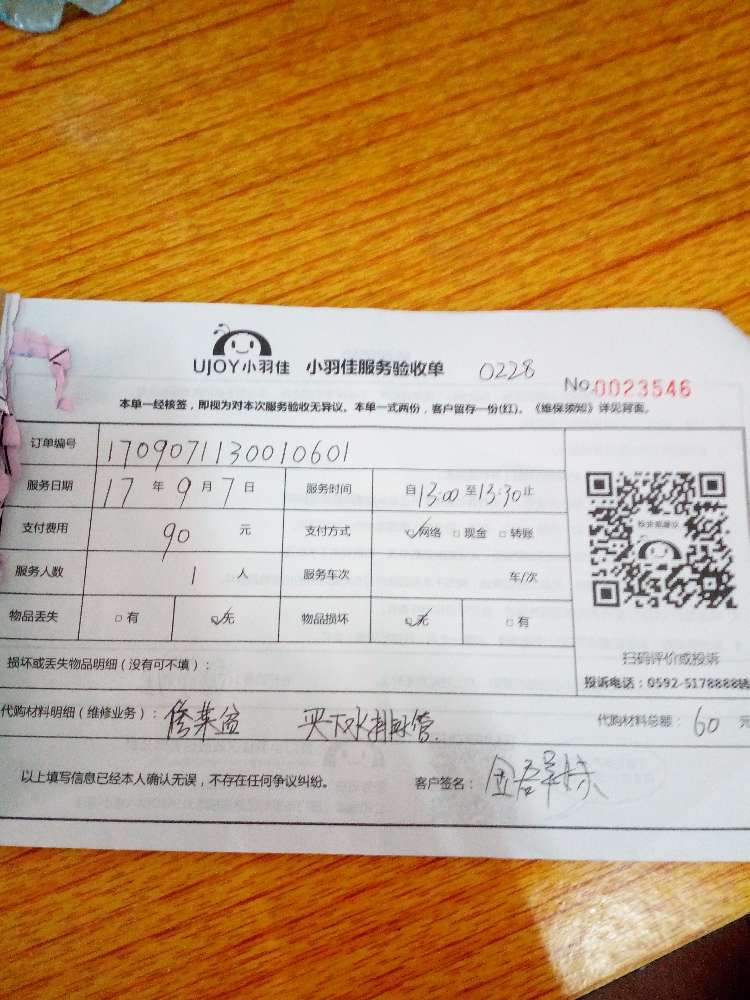 UJOY小羽佳 小羽佳服务验收单 0228 No.0023546
本单一经核签，即视为对本次服务验收无异议。本单一式两份，客户留存一份(红)。《维保须知》详见背面。
订单编号 1709071130010601
服务日期 17 年 9 月 7 日 服务时间 自 13:00 至 13:30 止
支付费用 90 元 支付方式 网络 现金 转账
服务人数 1 人 服务车次 车/次
物品丢失 有 无 物品损坏 无 有
扫码评价或投诉
损坏或丢失物品明细（没有可不填）：
投诉电话：0592-5178888转
代购材料明细（维修业务）： 修菜盆 买下水 管. 代购材料总额： 60 元
以上填写信息已经本人确认无误，不存在任何争议纠纷。 客户签名：